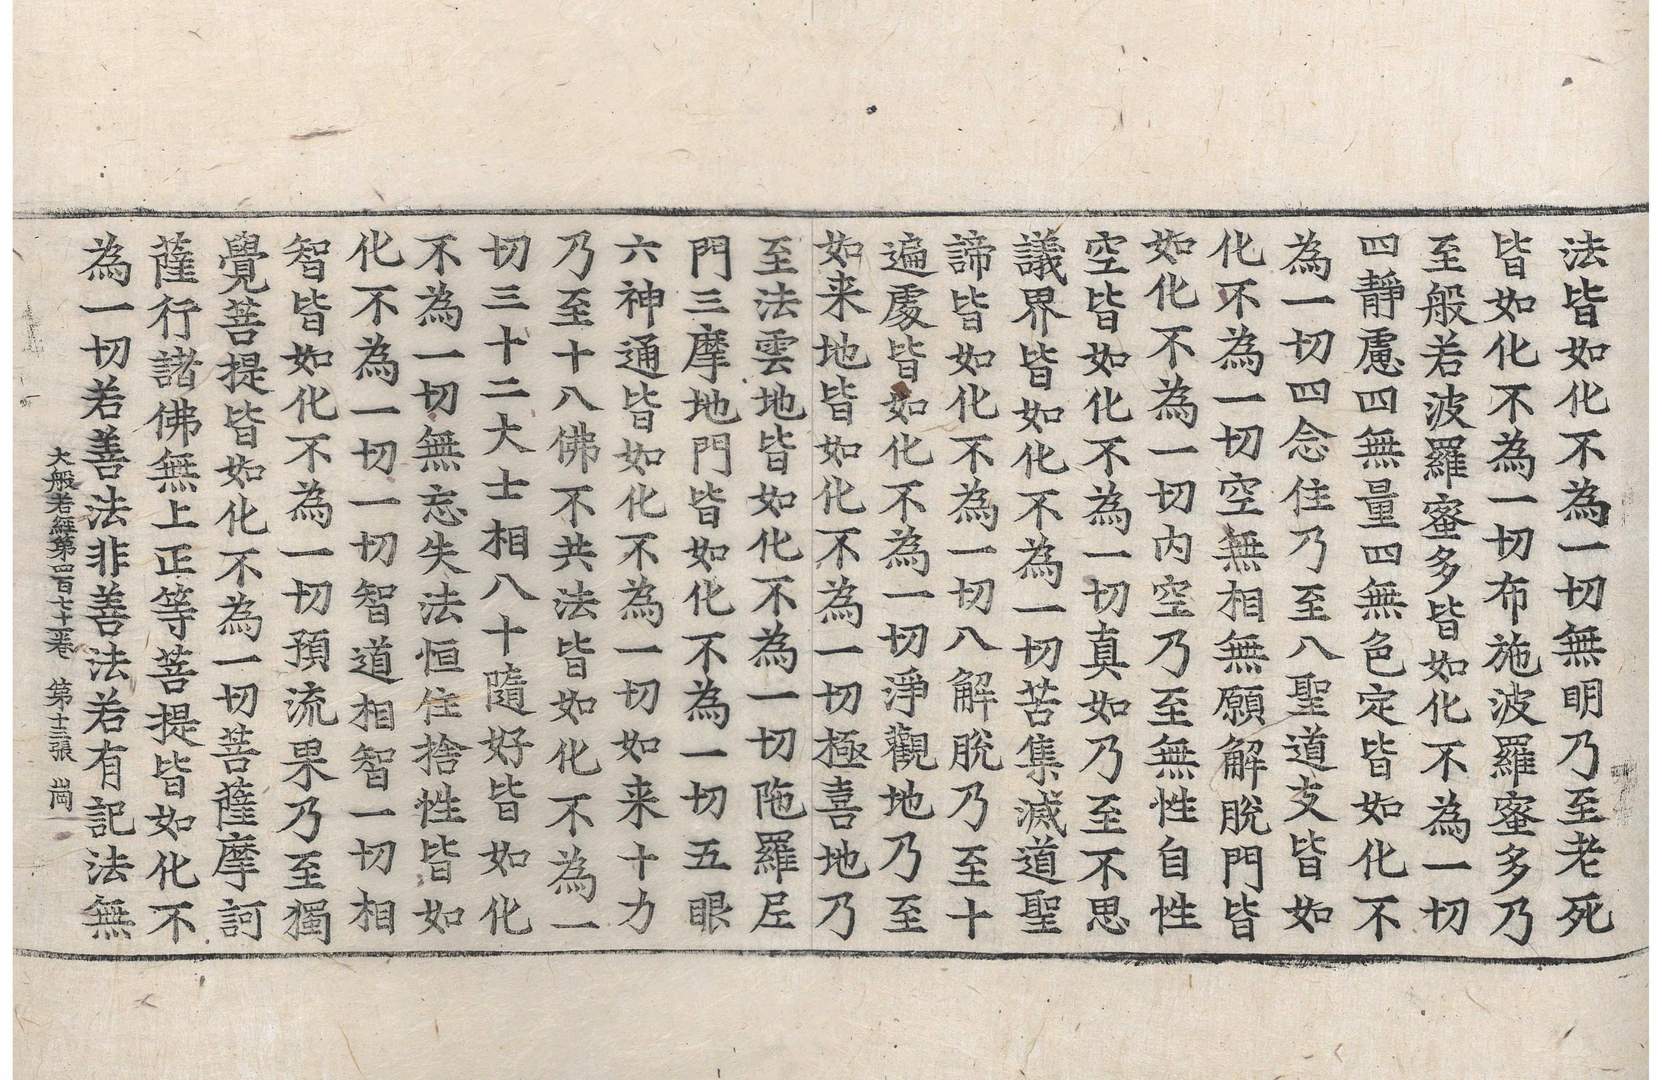 法皆如化不為一切無明乃至老死
皆如化不為一切布施波羅蜜多乃
至般若波羅蜜多皆如化不為一切
四靜慮四無量四無色定皆如化不
為一切四念住乃至八聖道支皆如
化不為一切空無相無願解脫門皆
如化不為一切內空乃至無性自性
空皆如化不為一切真如乃至不思
議界皆如化不為一切苦集滅道聖
諦皆如化不為一切八解脫乃至十
遍處皆如化不為一切淨觀地乃至
如来地皆如化不為一切極喜地乃
至法雲地皆如化不為一切陁羅尼
門三摩地門皆如化不為一切五眼
六神通皆如化不為一切如来十力
乃至十八佛不共法皆如化不為一
切三十二大士相八十隨好皆如化
不為一切無忘失法恒住捨性皆如
化不為一切一切智道相智一切相
智皆如化不為一切預流果乃至獨
覺菩提皆如化不為一切菩薩摩訶
薩行諸佛無上正等菩提皆如化不
為一切若善法非善法若有記法無
大般若經第四百七十六卷 第十三張 崗